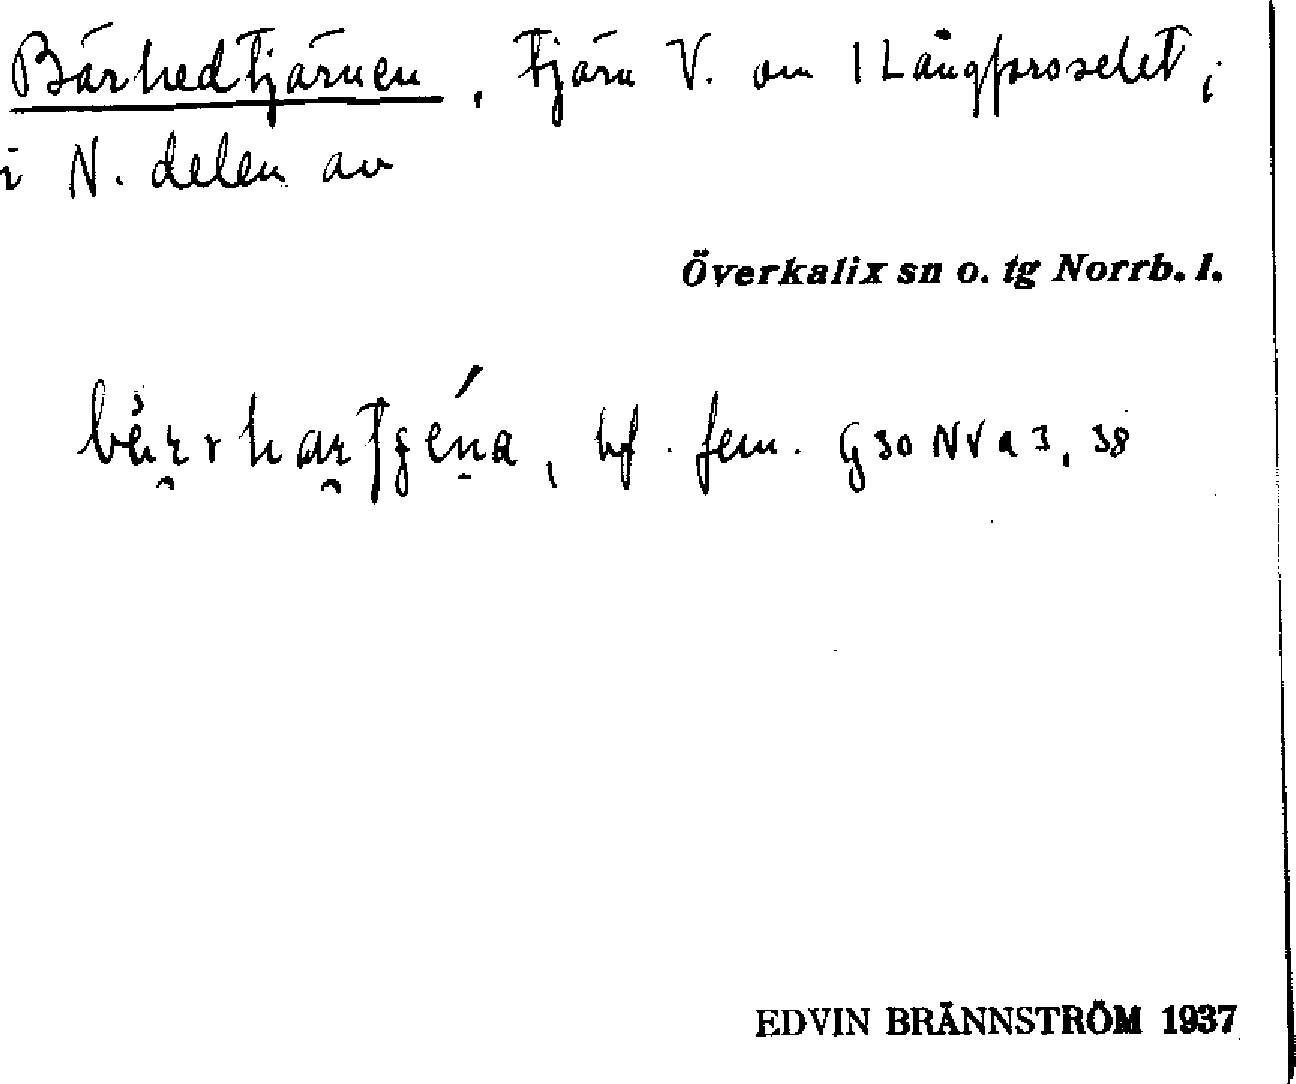 Bärhedtjärnen, tjärn V. om Långforsselet,
i N. delen av
Överkalix sn o. tg Norrb. l.
bf. fem. G 30 NV a 3, 38
EDVIN BRÄNNSTRÖM 1937